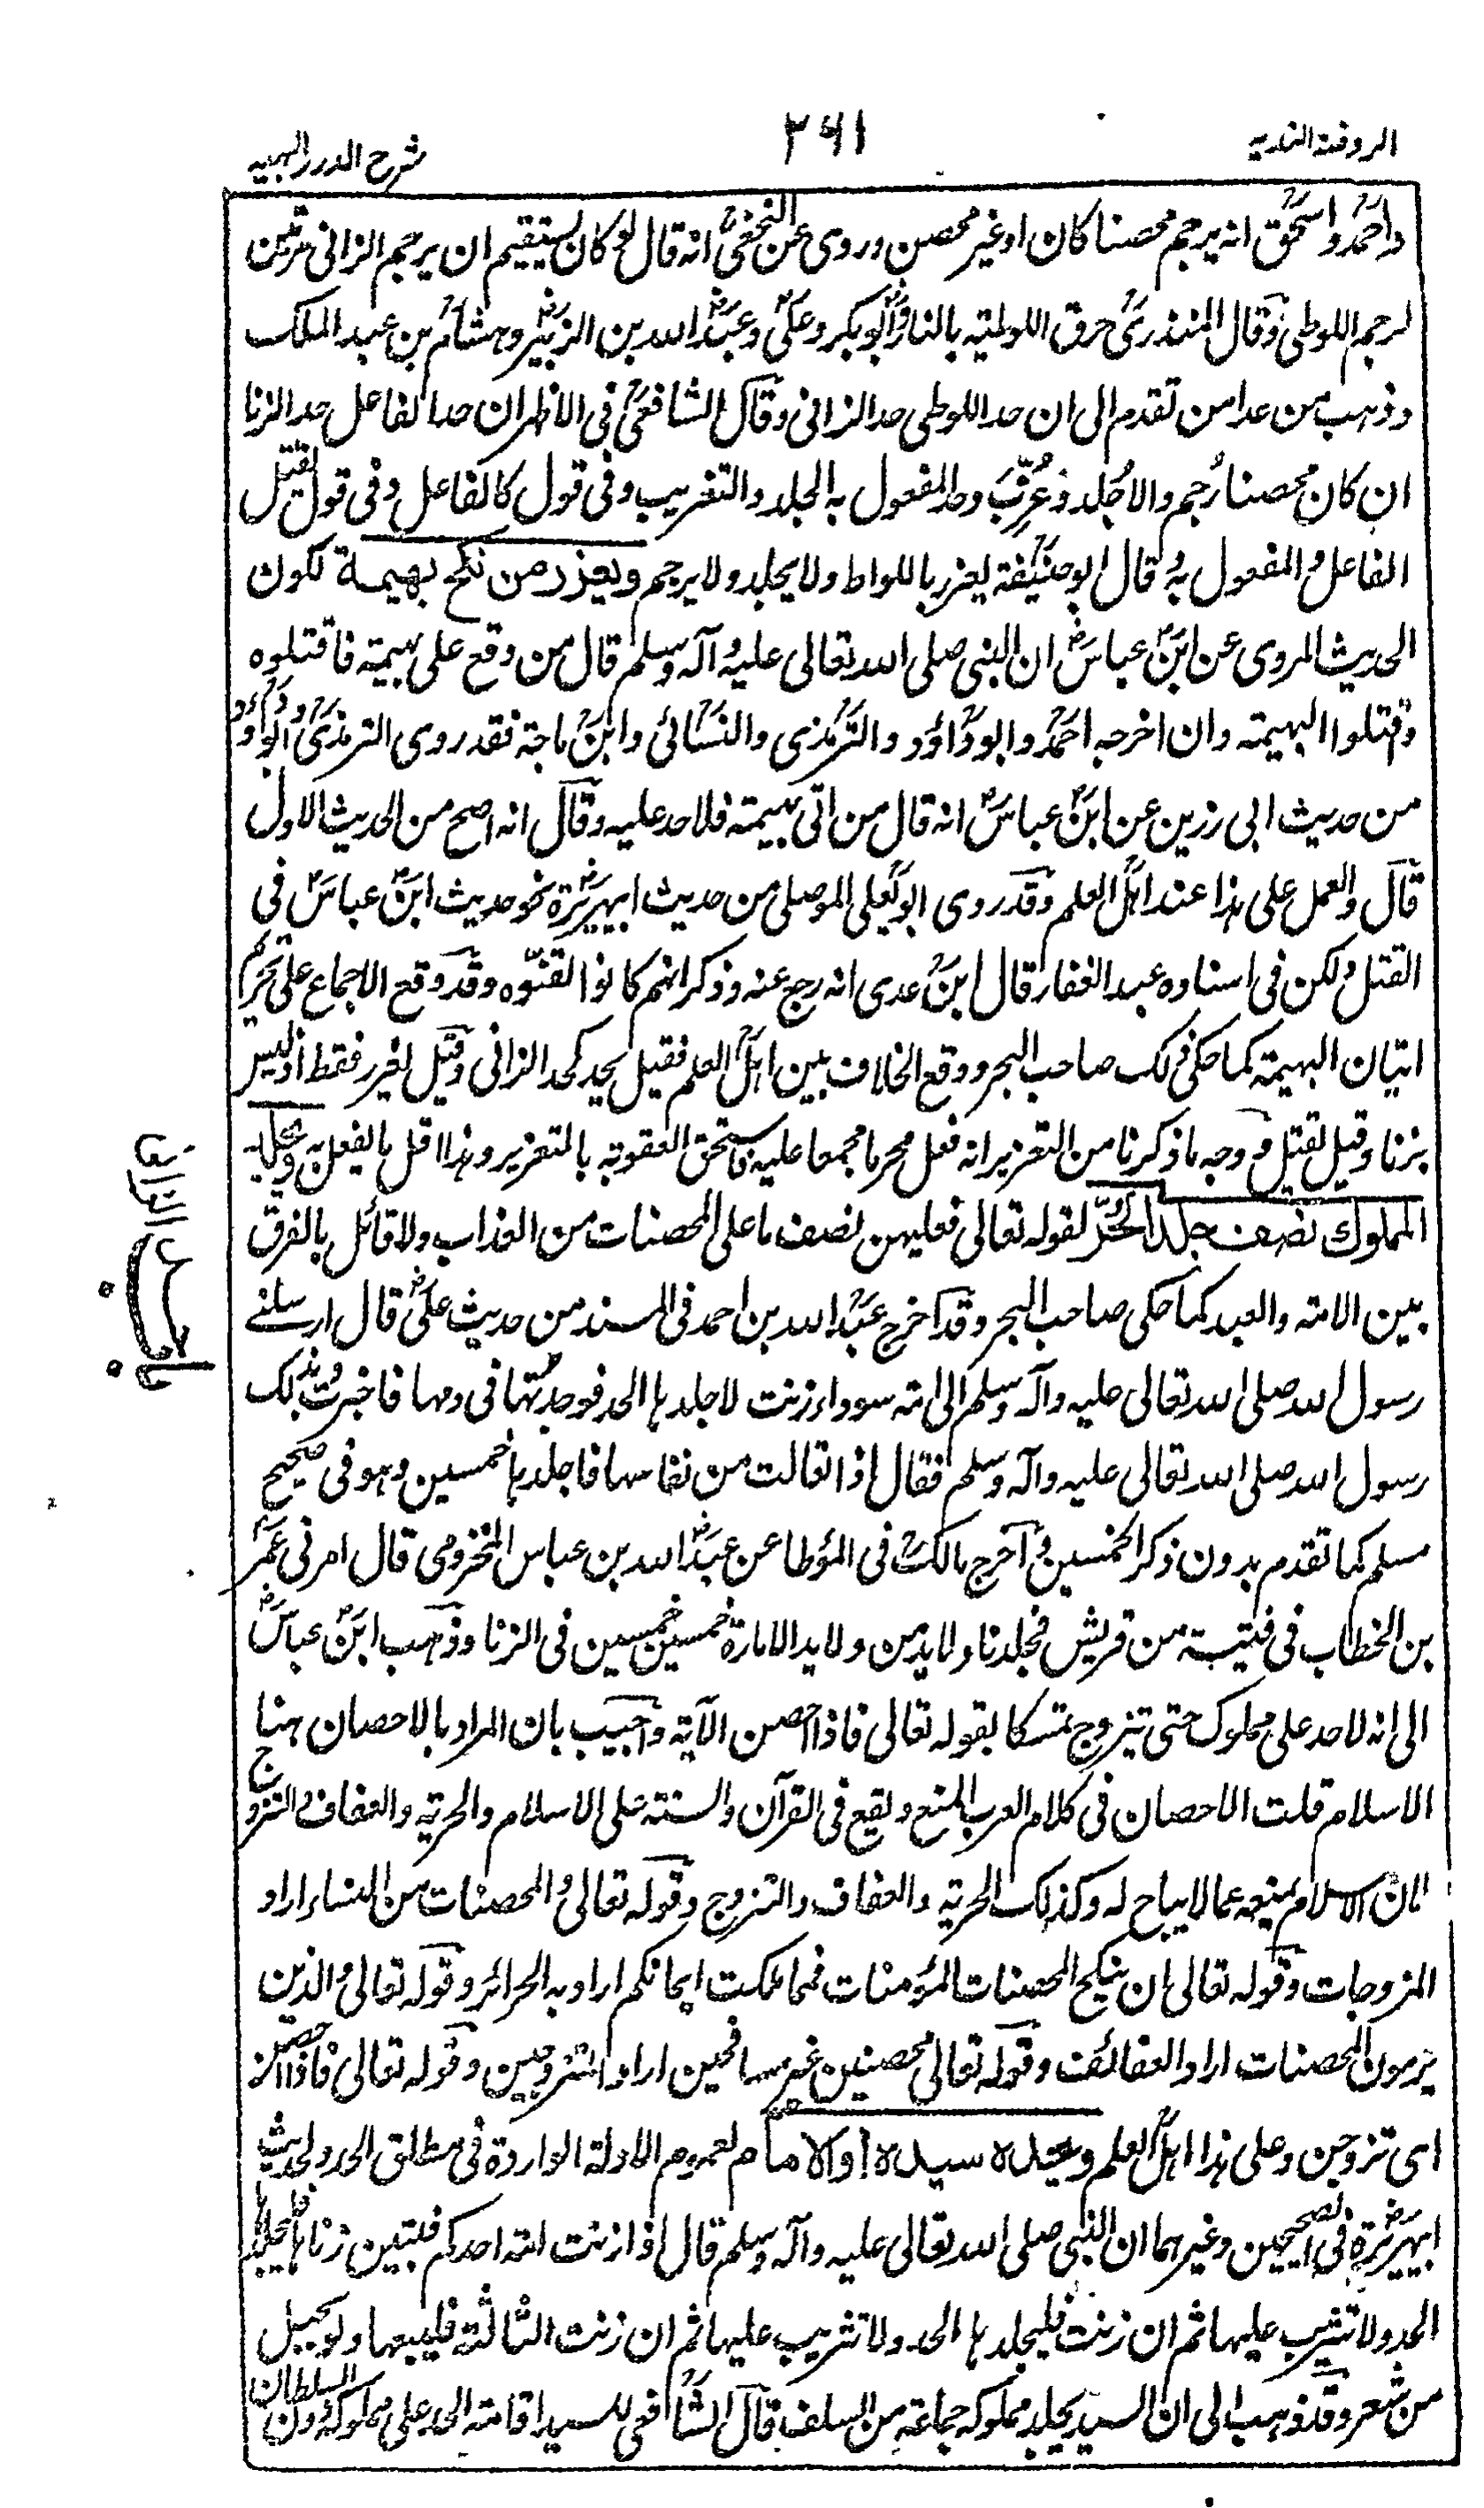 الروضة الندیه
۳۶۱
شرح الدرر البهیه
واحمد واسحٰق انه یرجم محصنا کان او غیر محصن وروی عن النخعی انه قال لو کان یستقیم ان یرجم الزانی مرتین
لرجم اللوطی وقال المنذری حرق اللوطیة بالنار ابو بکر وعلی وعبد الله بن الزبیر وهشام بن عبد الملک
وذهب من عدا من تقدم الی ان حد اللوطی حد الزانی وقال الشافعی فی الاظهر ان حد الفاعل حد الزنا
ان کان محصنا رُجم والا جُلد وغُرِّبَ وحد المفعول به الجلد والتغریب وفی قول کالفاعل وفی قول یقتل
الفاعل والمفعول به وقال ابو حنیفة یعزر باللواط ولا یجلد ولا یرجم ویعزر من نکح بهیمة لکون
الحدیث المروی عن ابن عباس ان النبی صلی الله تعالی علیه وآله وسلم قال من وقع علی بهیمة فاقتلوه
واقتلوا البهیمة وان اخرجه احمد وابو داؤد والترمذی والنسائی وابن ماجة فقد روی الترمذی وابو داؤد
من حدیث ابی رزین عن ابن عباس انه قال من اتی بهیمة فلا حد علیه وقال انه اصح من الحدیث الاول
قال والعمل علی هذا عند اهل العلم وقد روی ابو یعلی الموصلی من حدیث ابیهریرة نحو حدیث ابن عباس فی
القتل ولکن فی اسناده عبد الغفار قال ابن عدی انه رجع عنه وذکر انهم کانوا لقنّوه وقد وقع الاجماع علی تحریم
اتیان البهیمة کما حکی ذلک صاحب البحر ووقع الخلاف بین اهل العلم فقیل یحد کحد الزانی وقیل یعزر فقط اذ لیس
بزنا وقیل یقتل ووجه ما ذکرنا من التعزیر انه فعل محرما مجمعا علیه فاستحق العقوبة بالتعزیر وهذا اقل ما یفعل به ویجلد
المملوك نصف جلد الحُرّ لقوله تعالی فعلیهن نصف ما علی المحصنات من العذاب ولا قائل بالفرق
بین الامة والعبد کما حکی صاحب البحر وقد اخرج عبد الله بن احمد فی المسند من حدیث علی قال ارسلنے
رسول الله صلی الله تعالی علیه وآله وسلم الی امة سوداء زنت لاجلدها الحد فوجدتها فی دمها فاخبرتُ بذلک
رسول الله صلی الله تعالی علیه وآله وسلم فقال اذا تعالت من نفاسها فاجلدها خمسین وهو فی صحیح
مسلم کما تقدم بدون ذکر الخمسین واخرج مالک فی المؤطا عن عبد الله بن عیاش المخزومی قال امرنی عمر
بن الخطاب فی فتیة من قریش فجلدنا ولائد من ولاید الامارة خمسین خمسین فی الزنا وذهب ابن عباس
الی انه لا حد علی مملوک حتی تیزوج تمسکا بقوله تعالی فاذا احصن الآیة واجیب بان المراد بالاحصان هنا
الاسلام قلت الاحصان فی کلام العرب المنع ویقع فی القرآن والسنة علی الاسلام والحریة والعفاف والتزوج
لان الاسلام یمنعه عما لا یباح له وکذلک الحریة والعفاف والتزوج وقوله تعالی والمحصنات من النساء اراد
المزوجات وقوله تعالی ان ینکح المحصنات المؤمنات فمما ملکت ایمانکم اراد به الحرائر وقوله تعالی والذین
یرمون المحصنات اراد العفائف وقوله تعالی محصنین غیر مسافحین اراد المتزوجین وقوله تعالی فاذا احصن
ای تزوجن وعلی هذا اهل العلم ویحدہ سیدہ او الامام لعموم الادلة الواردة فی مطلق الحد ولحدیث
ابیهریرة فی الصحیحین وغیرهما ان النبی صلی الله تعالی علیه وآله وسلم قال اذا زنت امة احدکم فتبین زناها فلیجلدها
الحد ولا تثریب علیها ثم ان زنت فلیجلدها الحد ولا تثریب علیها ثم ان زنت الثالثة فلیبعها ولو بحبل
من شعر وقد ذهب الی ان السید یجلد مملوکه جماعة من السلف قال الشافعی للسید اقامة الحد علی مملوکه دون السلطان